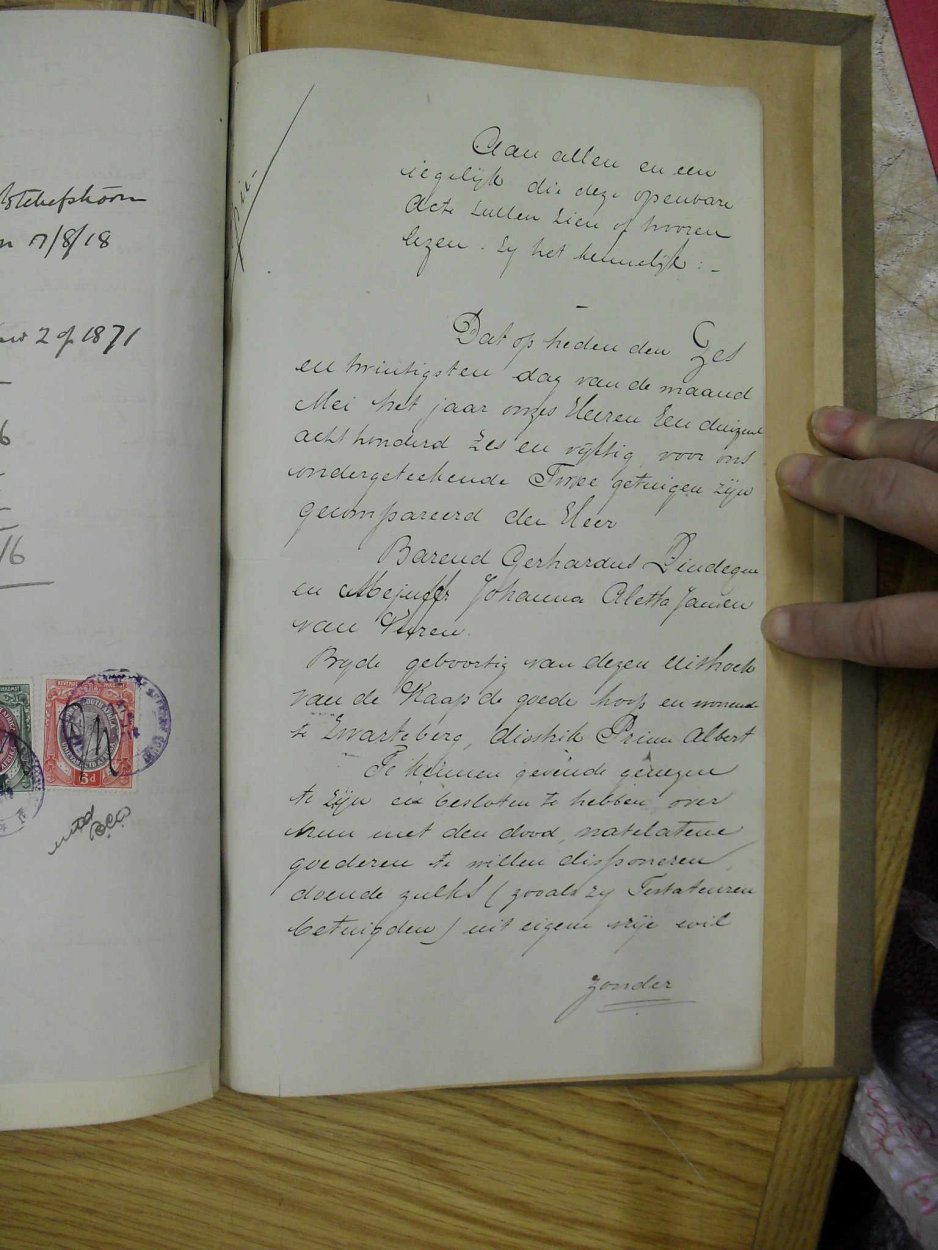 Potchefstroom
17/8/18
2 of 1871
6
16
6d
Aan allen en een
iegelijk die deze openbare
Acte zullen zien of hooren
lezen. Zy het kennelijk:-
Dat op heden den Zes
en twintigsten dag van de maand
Mei het jaar onzes Heeren Een duizend
acht honderd zes en vyftig, voor ons
ondergeteekende Twee getuigen zijn
gecompareerd den Heer
Barend Gerhardus Pindegue
en Mejuffr Johanna Aletta Jansen
van Vuren.
Beyde geboortig van dezen uithoek
van de Kaap de goede hoop en wonende
te Zwarteberg, distrik Prins Albert
Te kennen gevende genegen
te zijn en besloten te hebben over
hun met den dood, natelatene
goederen te willen disponeren,
doende zulks (zooals zy Testateuren
betuigden) uit eigen vrije wil
zonder